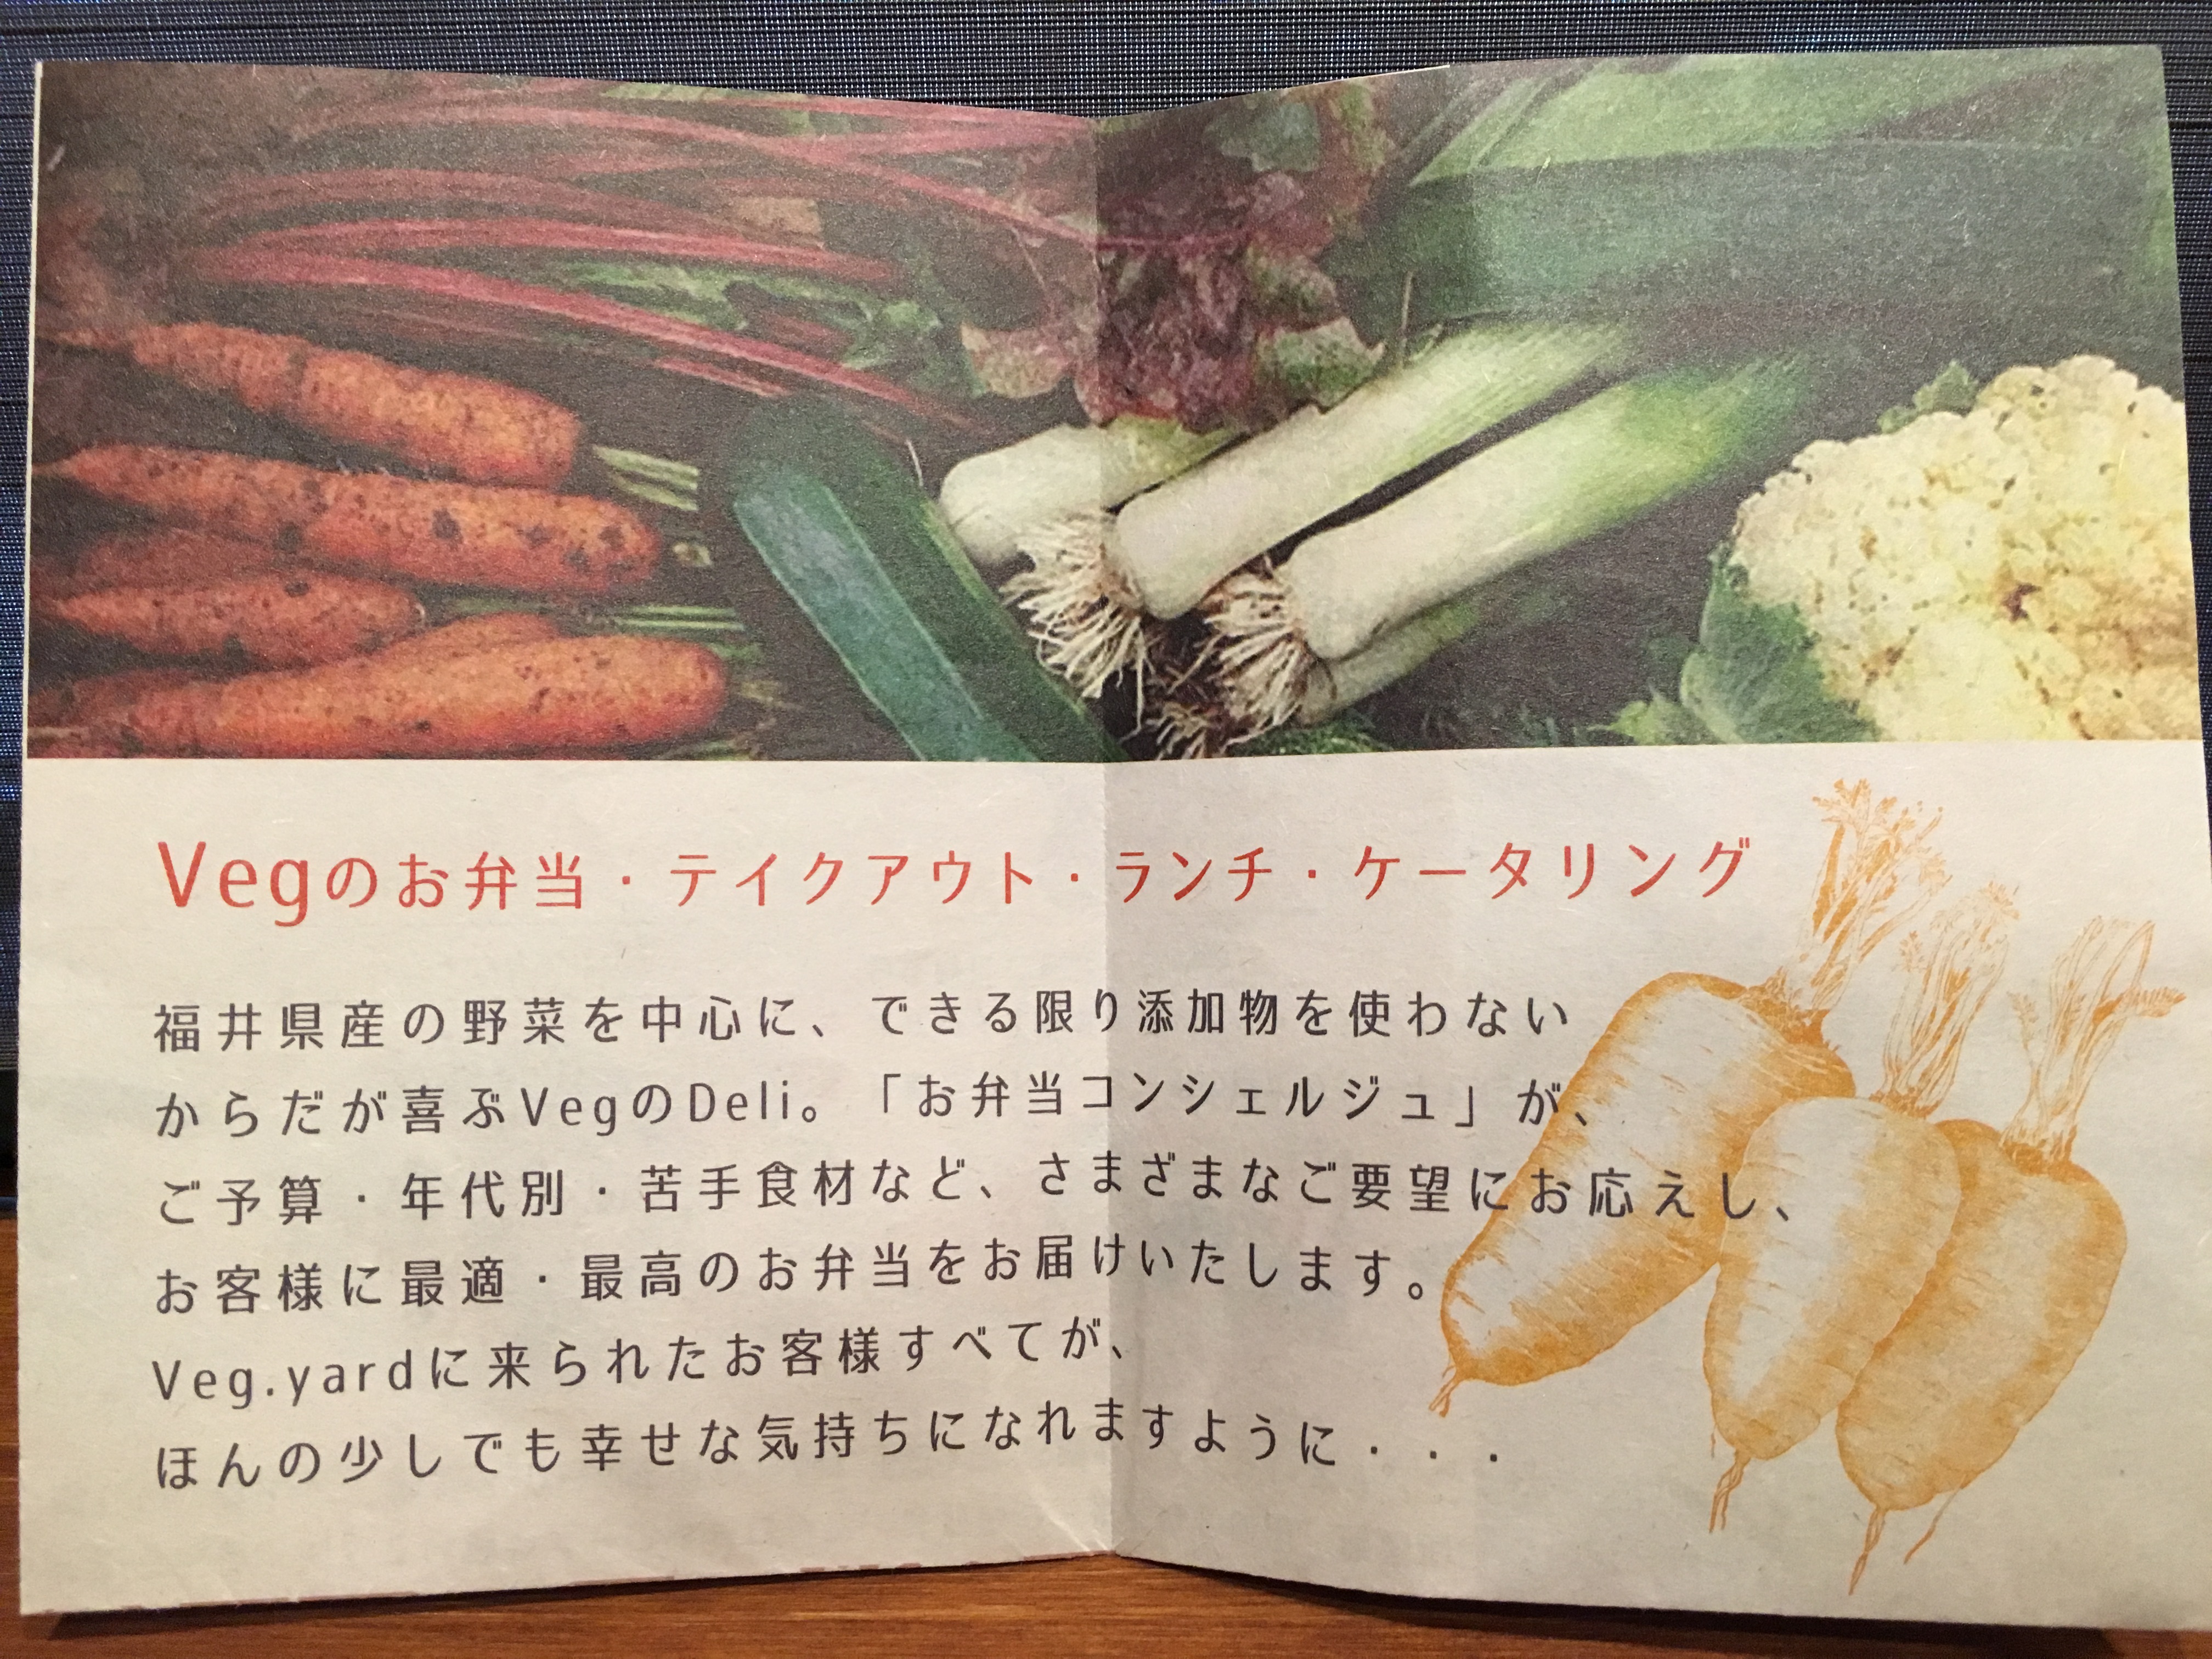 Vegのお弁当・テイクアウト・ランチ・ケータリング
福井県産の野菜を中心に、できる限り添加物を使わない
からだが喜ぶVegのDeli。「お弁当コンシェルジュ」が、
ご予算・年代別・苦手食材など、さまざまなご要望にお応えし、
お客様に最適・最高のお弁当をお届けいたします。
Veg.yardに来られたお客様すべてが、
ほんの少しでも幸せな気持ちになれますように・・・